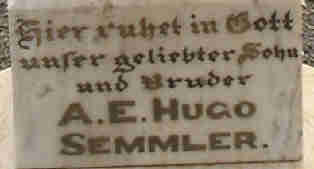 Hier ruhet in Gott
unser geliebter Sohn
und Bruder
A. E. HUGO
SEMMLER.